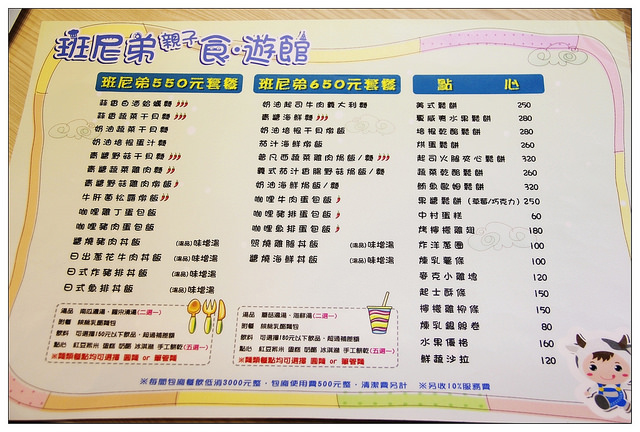 班尼弟親子食·遊館
班尼弟550元套餐
蒜香白酒蛤蠣麵
蒜香蔬菜干貝麵
奶油蔬菜干貝麵
奶油培根蛋汁麵
青醬野菇干貝麵
青醬蔬菜雞肉麵
青醬野菇雞肉燉飯
牛肝菌松露燉飯
咖哩雞丁蛋包飯
咖哩魚肉蛋包飯
醬燒豬肉丼飯 (湯品)味增湯
日出蔥花牛肉丼飯 (湯品)味增湯
日式炸豬排丼飯 (湯品)味增湯
日式魚排丼飯 (湯品)味增湯
湯品 南瓜濃湯、羅宋清湯(二選一)
附餐
飲料 可選擇150元以下飲品，超過補差額
點心 紅豆紫米 蛋糕 奶酪 冰淇淋 手工餅乾(五選一)
※麵類餐點均可選擇 圓麵 or 筆管麵
班尼弟650元套餐
奶油起司牛肉義大利麵
青醬海鮮麵
奶油培根干貝燉飯
茄汁海鮮燉飯
普凡西蔬菜雞肉焗飯/麵
義式茄汁香腸野菇焗飯/麵
奶油海鮮焗飯/麵
咖哩牛肉蛋包飯
咖哩豬排蛋包飯
咖哩海鮮蛋包飯
照燒雞腿丼飯 (湯品)味增湯
醬燒海鮮丼飯 (湯品)味增湯
湯品 蘑菇濃湯、海鮮湯(二選一)
附餐
飲料 可選擇180元以下飲品，超過補差額
點心 紅豆紫米 蛋糕 奶酪 冰淇淋 手工餅乾(五選一)
※麵類餐點均可選擇 圓麵 or 筆管麵
點 心
美式鬆餅 250
夏威夷水果鬆餅 280
培根乾酪鬆餅 280
烘蛋鬆餅 260
起司火腿夾心鬆餅 320
蔬菜乾酪鬆餅 260
鮪魚歐姆鬆餅 320
果醬鬆餅(草莓/巧克力) 250
中村蛋糕 60
烤檸檬雞翅 180
炸洋蔥圈 100
煉乳薯條 100
麥克小雞塊 120
起士酥條 150
檸檬雞柳條 150
煉乳銀絲卷 80
水果優格 160
鮮蔬沙拉 120
※每間包廂餐飲低消3000元整，包廂使用費500元整，清潔費另計 ※另收10%服務費